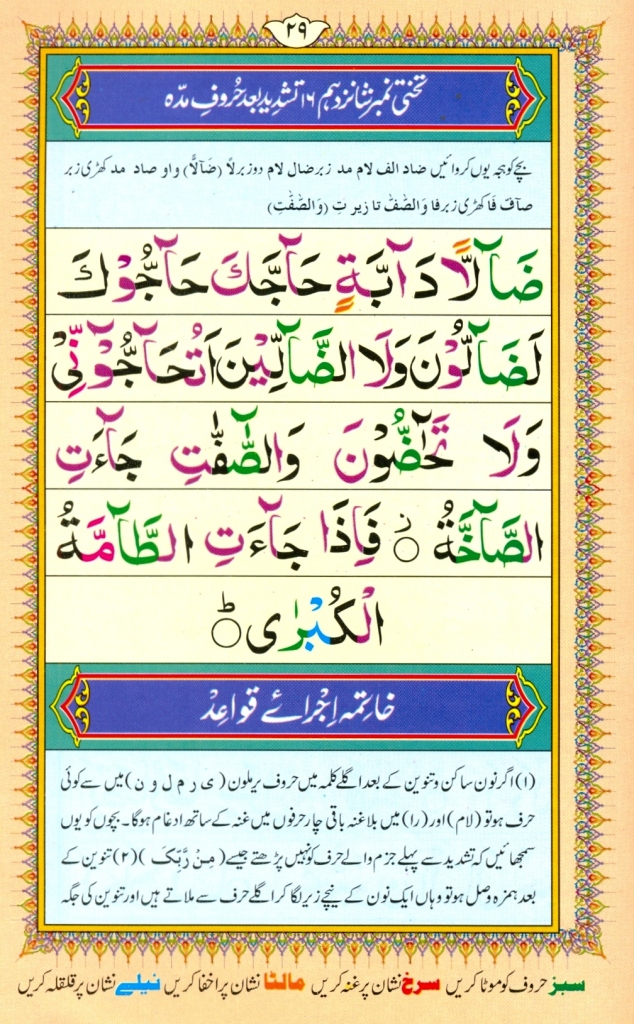 ۲۹
تختی نمبر شانزدہم ۱۶ تشدید بعد حُروفِ مدّہ
بچے کو ہجہ یوں کروائیں ضاد الف لام مد زبر ضال لام دو زبر لاً (ضَآلًّا) واو صاد مد کھڑی زبر
صآفّ فا کھڑی زبر فا وَالصّٰٓفّٰ تا زیر تِ (وَالصّٰٓفّٰتِ)
ضَآلًّا دَآبَّةٍ حَآجَّكَ حَآجُّوْكَ
لَضَآلُّوْنَ وَلَا الضَّآلِّيْنَ اَتُحَآجُّوْٓنِّيْ
وَلَا تَحٰٓضُّوْنَ وَالصّٰٓفّٰتِ جَآءَتِ
الصَّآخَّةُ ۝ فَاِذَا جَآءَتِ الطَّآمَّةُ
الْكُبْرٰى ۝ؕ
خاتمہ اِجْرائے قواعِدْ
(۱) اگر نون ساکن و تنوین کے بعد اگلے کلمہ میں حروف یرملون (ی ر م ل و ن) میں سے کوئی
حرف ہو تو (لام) اور (را) میں بلاغنہ باقی چار حرفوں میں غنہ کے ساتھ ادغام ہوگا۔ بچوں کو یوں
سمجھائیں کہ تشدید سے پہلے جزم والے حرف کو نہیں پڑھتے جیسے (مِنْ رَّبِّكَ) (۲) تنوین کے
بعد ہمزہ وصل ہو تو وہاں ایک نون کے نیچے زیر لگا کر اگلے حرف سے ملاتے ہیں اور تنوین کی جگہ
سبز حروف کو موٹا کریں سرخ نشان پر غنہ کریں مالٹا نشان پر اخفا کریں نیلے نشان پر قلقلہ کریں